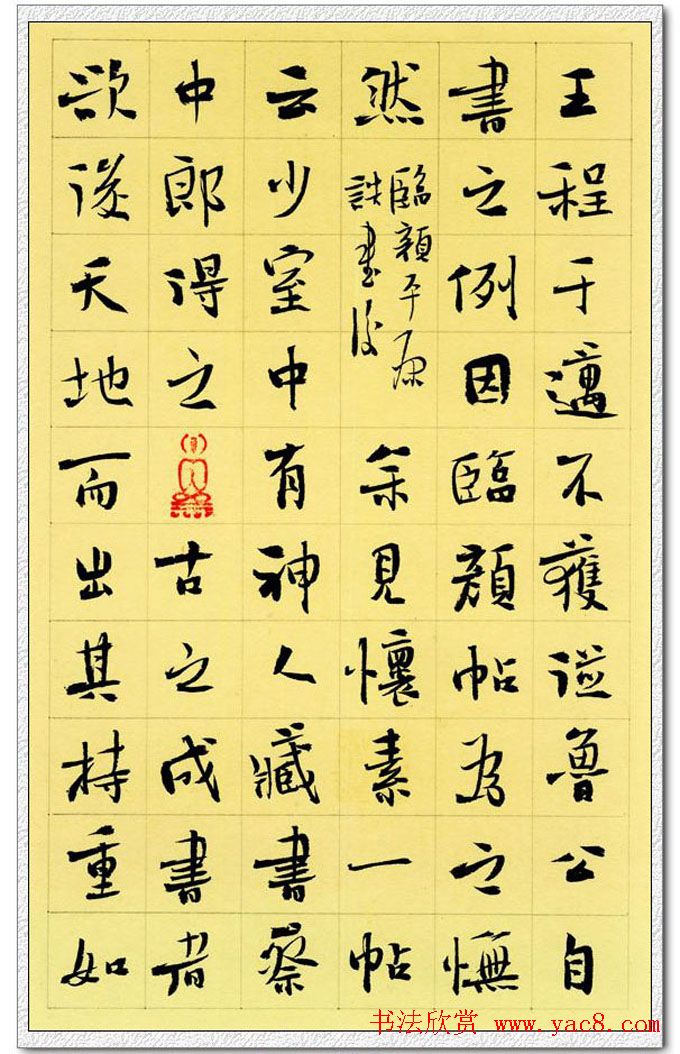 王程于邁不獲謚魯公自
書之例因臨顏帖為之憮
然
臨顏平原
書後
余見懷素一帖
云少室中有神人藏書蔡
中郎得之古之成書者
欲後天地而出其持重如
书法欣赏 www.yac8.com